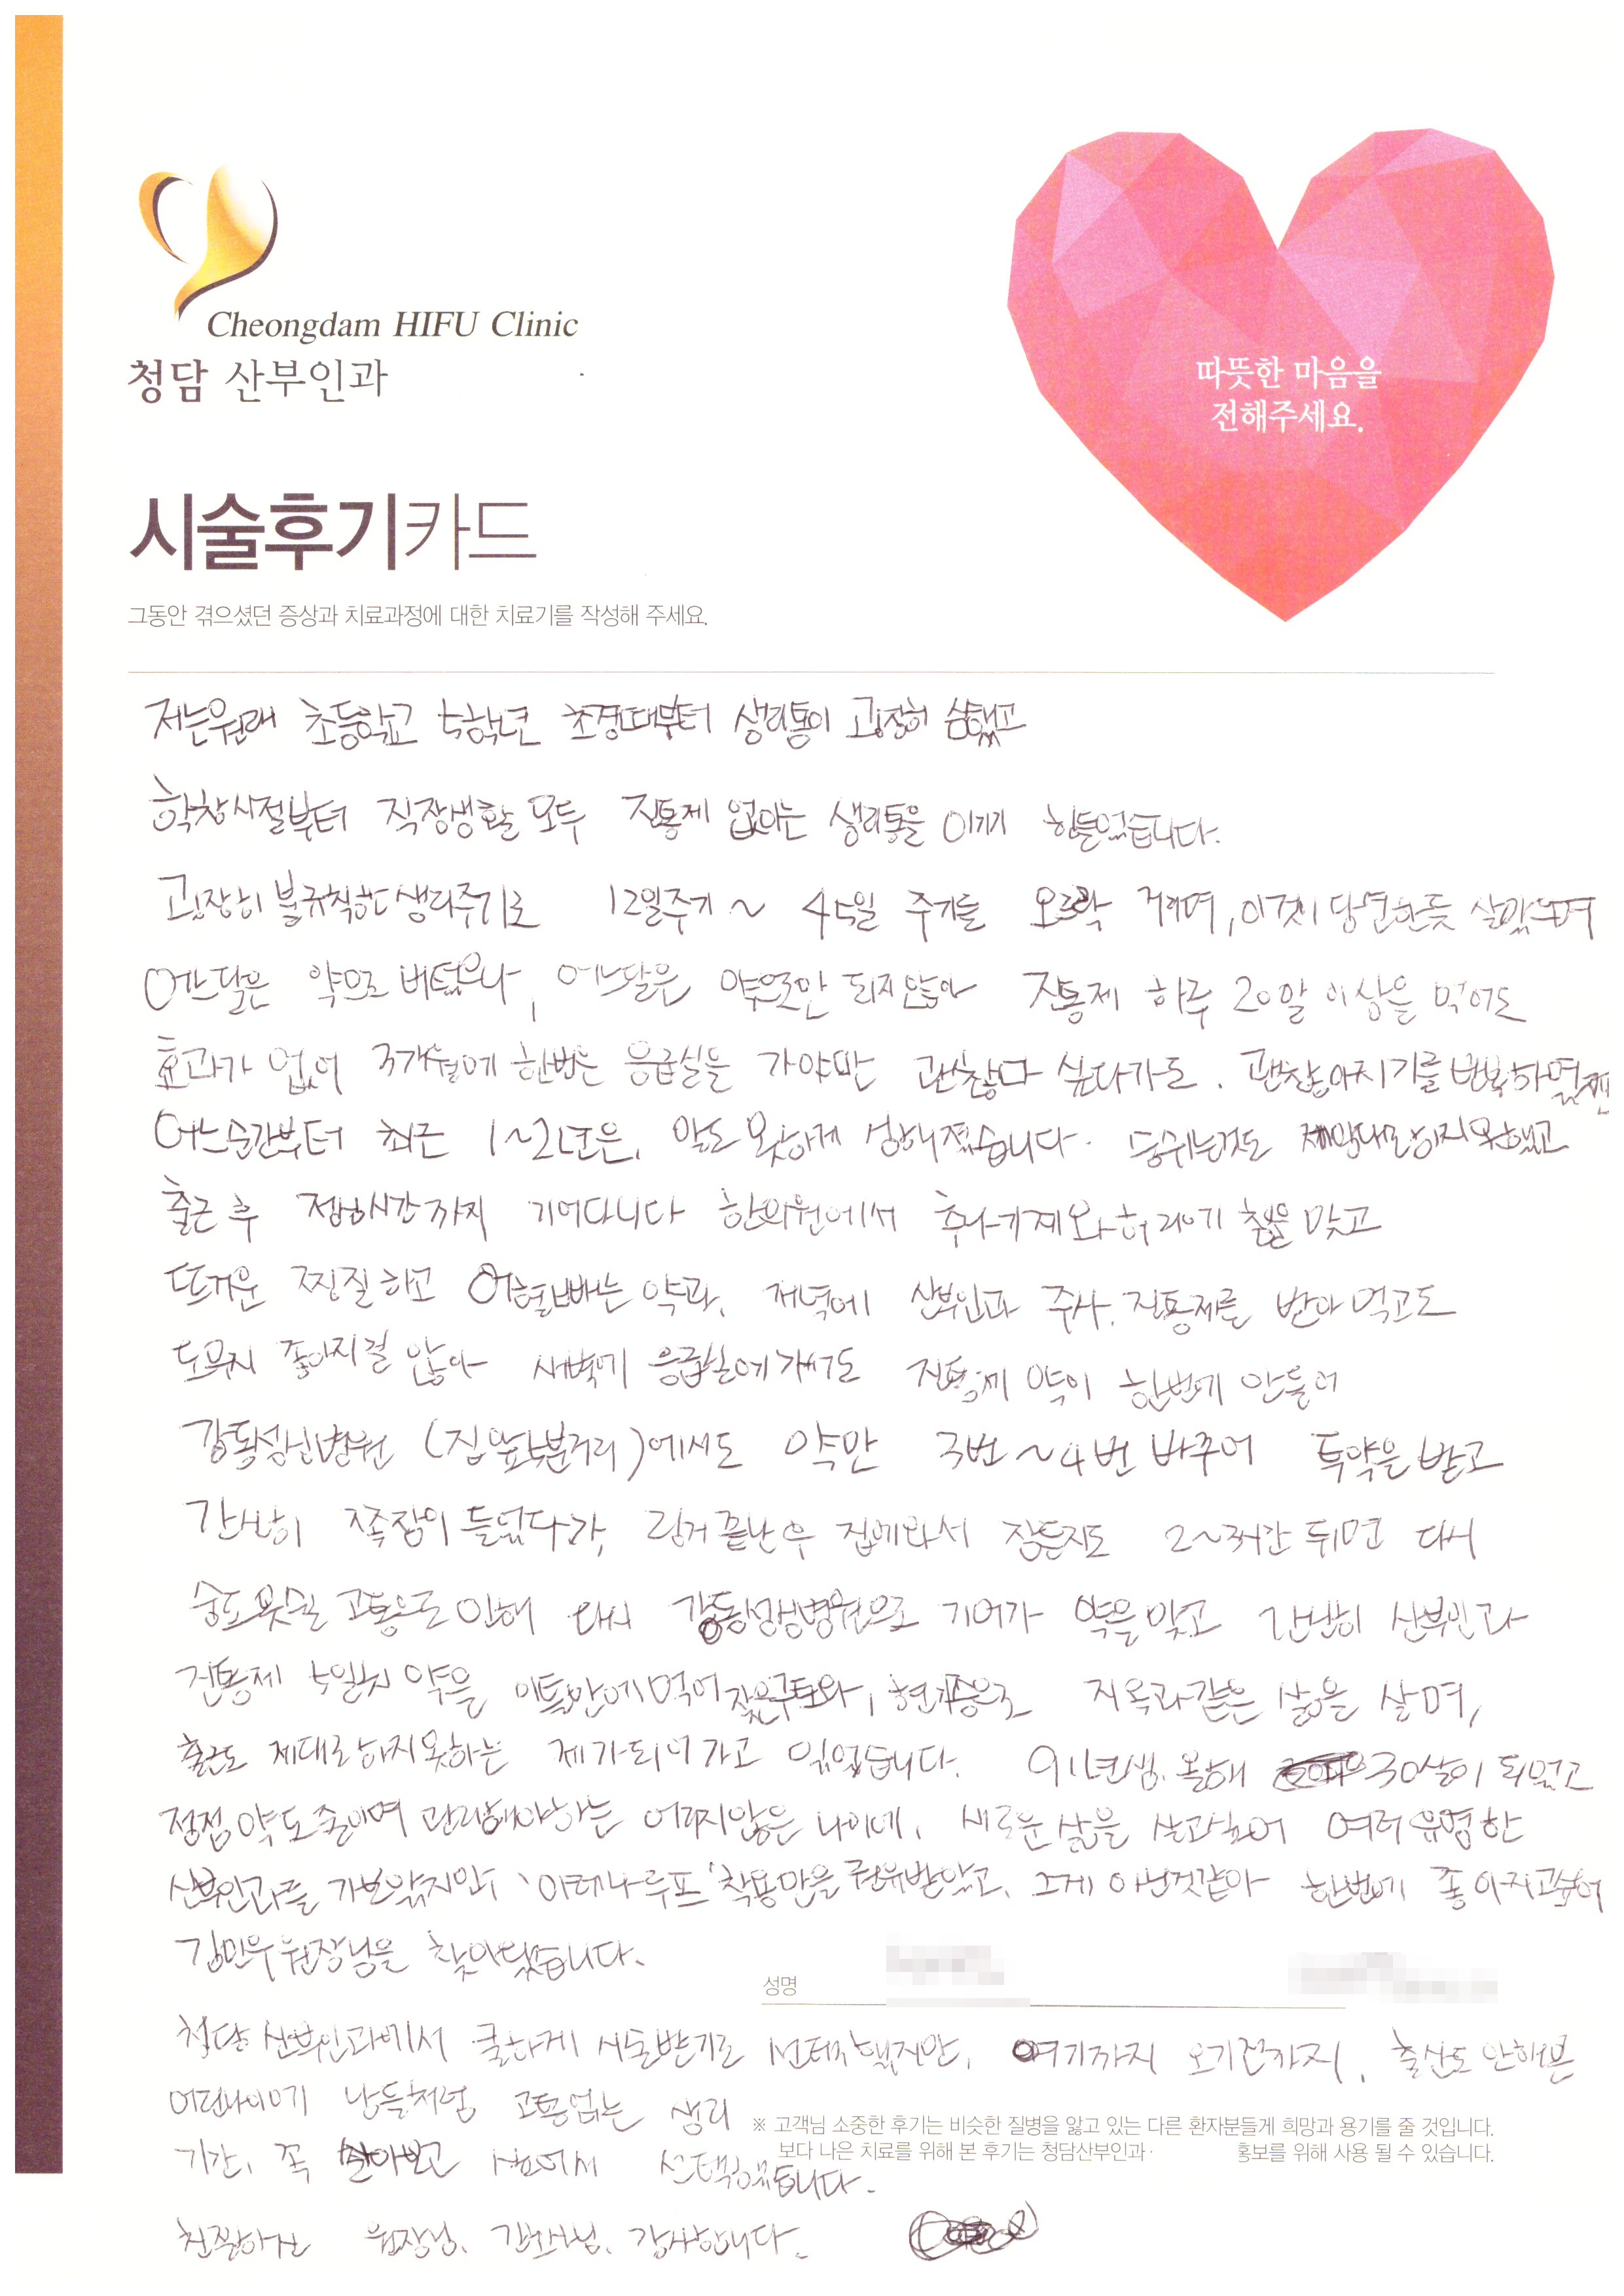 Cheongdam HIFU Clinic
청담 산부인과
따뜻한 마음을
전해주세요.
시술후기카드
그동안 겪으셨던 증상과 치료과정에 대한 치료기를 작성해 주세요.
저는 원래 초등학교 5학년 초경때부터 생리통이 굉장히 심했고
학창시절부터 직장생활 모두 진통제 없이는 생리통을 이기기 힘들었습니다.
굉장히 불규칙한 생리주기로 12일주기 ~ 45일 주기를 오르락 거리며, 이것이 당연한듯 살았으며
어느달은 약으로 버텼으나, 어느달은 약으로만 되지않아 진통제 하루 20알 이상을 먹어도
효과가 없어 3개월에 한번은 응급실을 가야만 괜찮다 싶다가도. 괜찮아지기를 반복하며
어느순간부터 최근 1~2년은, 말도 못하게 심해졌습니다. 숨쉬는것도 제대로하지못했고
출근 후 점심시간까지 기어다니다 한의원에서 추나기계와 허리에 침을 맞고
뜨거운 찜질하고 어혈빼는 약과, 저녁에 산부인과 주사, 진통제를 받아 먹고도
도무지 좋아지질 않아 새벽에 응급실에 가서도 진통제 약이 한번에 안들어
강동성심병원 (집앞 5분거리)에서도 약만 3번~4번 바꾸어 투약을 받고
간신히 쪽잠이 들었다가, 링거 끝난후 집에와서 잠든지도 2~3시간 뒤면 다시
숨도 못쉴 고통으로 인해 다시 강동성심병원으로 기어가 약을 맞고 간신히 산부인과
진통제 5일치 약을 이틀만에 먹어 잦은구토와, 현기증으로 지옥과같은 삶을 살며,
출근도 제대로하지못하는 제가되어가고 있었습니다. 91년생. 올해 30살이 되었고
점점 약도 줄이며 관리해야하는 어리지않은 나이에, 새로운 삶을 살고싶어 여러 유명한
산부인과를 가보았지만, '미레나 루프' 착용만을 권유받았고, 그게 아닌것같아 한번에 좋아지고싶어
김민우 원장님을 찾아왔습니다.
성명
청담 산부인과에서 쿨하게 시술받기로 선택했지만, 여기까지 오기전까지, 출산도 안해본
어린나이에 남들처럼 고통없는 생리
기간, 꼭 살아보고 싶어서 선택했습니다.
※ 고객님 소중한 후기는 비슷한 질병을 앓고 있는 다른 환자분들게 희망과 용기를 줄 것입니다.
보다 나은 치료를 위해 본 후기는 청담산부인과· 홍보를 위해 사용 될 수 있습니다.
친절하신 원장님, 간호사님, 감사합니다.